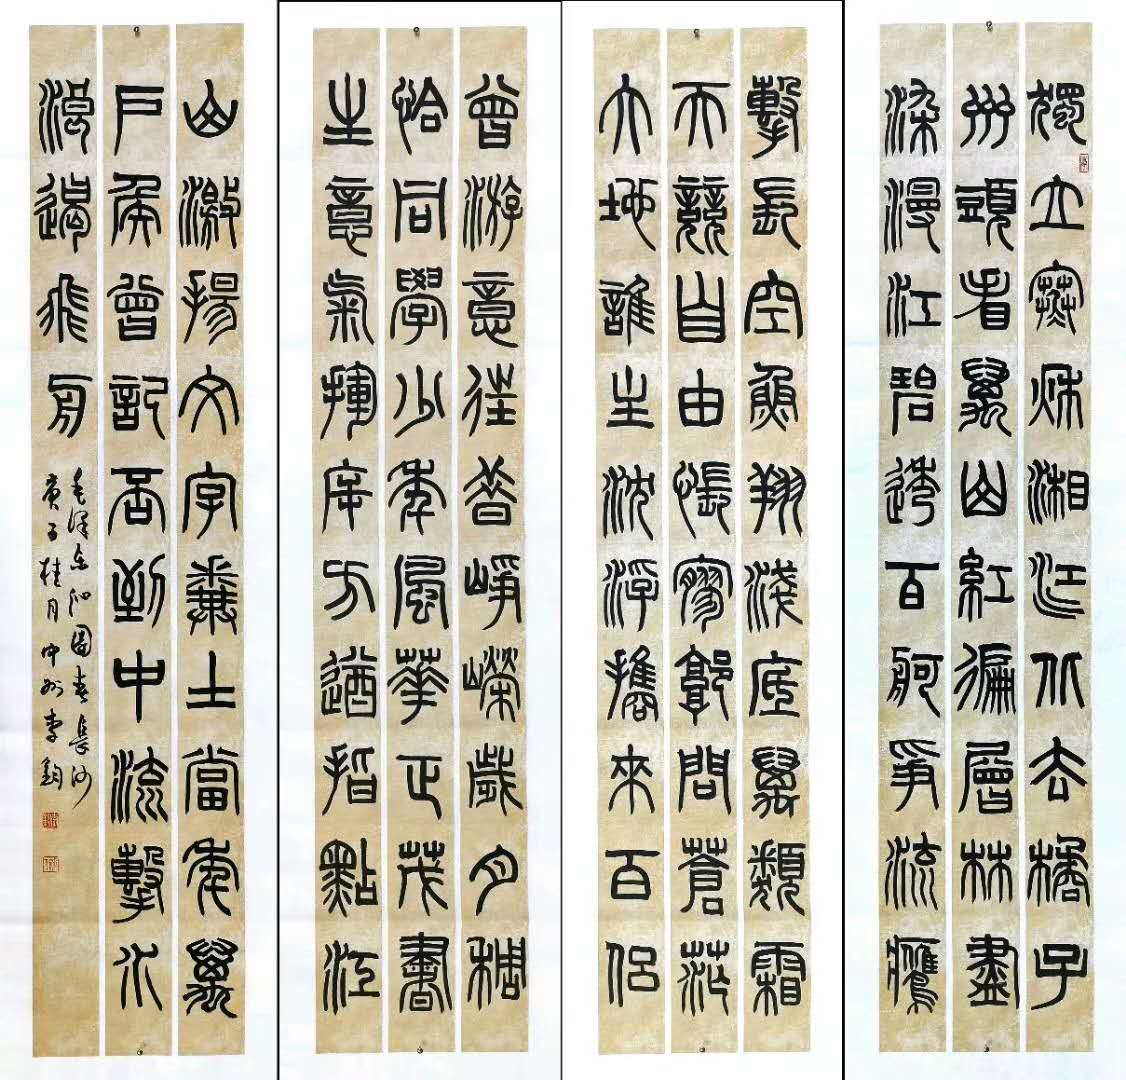 獨立寒秋湘江北去橘子
州頭看萬山紅徧層林盡
染漫江碧透百舸爭流鷹
擊長空魚翔淺底萬類霜
天競自由悵寥廓問蒼茫
大地誰主沈浮攜來百侶
曾游意往昔崢嶸歲月稠
恰同學少年風華正茂書
生意氣揮斥方遒指點江
山激揚文字糞土當年萬
戶侯曾記否到中流擊水
浪遏飛舟
毛澤東沁園春長沙
庚子桂月中州李鈞